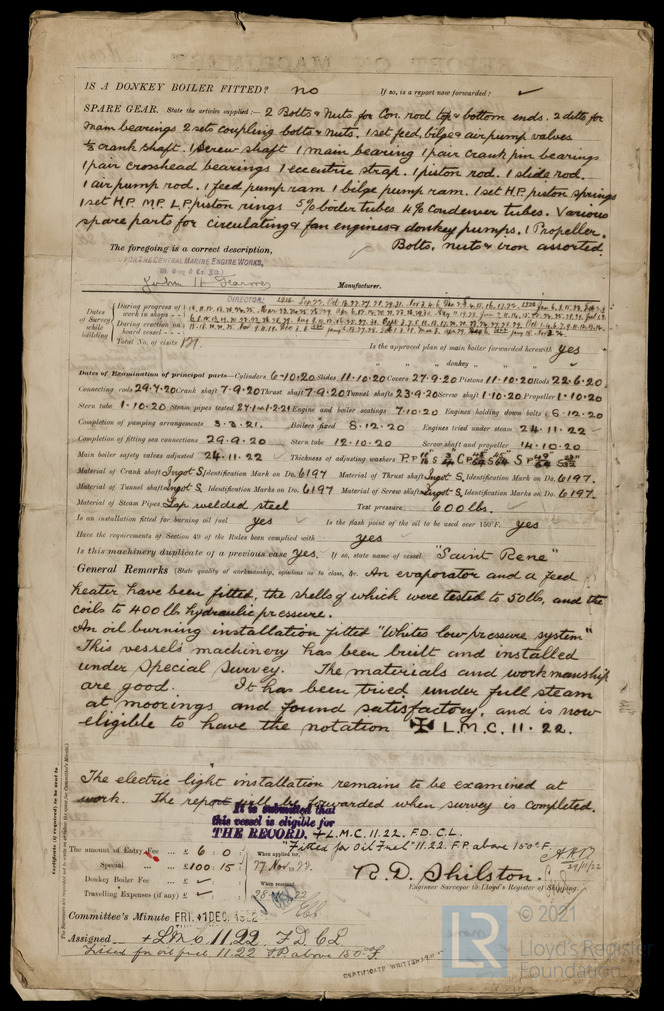 IS A DONKEY BOILER FITTED? no If so, is a report now forwarded? ✓
SPARE GEAR. State the articles supplied:— 2 Bolts & Nuts for Con. rod top & bottom ends. 2 ditto for
main bearings 2 sets coupling bolts & nuts. 1 set feed, bilge & air pump valves
½ crank shaft. 1 screw shaft 1 main bearing 1 pair crank pin bearings
1 pair crosshead bearings 1 eccentric strap. 1 piston rod. 1 slide rod.
1 air pump rod. 1 feed pump ram 1 bilge pump ram. 1 set H.P. piston springs
1 set H.P. M.P. L.P. piston rings 5% boiler tubes 4% condenser tubes. Various
spare parts for circulating & fan engines & donkey pumps. 1 Propeller.
The foregoing is a correct description, Bolts, nuts & iron assorted.
FOR THE CENTRAL MARINE ENGINE WORKS,
Manufacturer.
DIRECTOR:
Dates of Survey while building
During progress of work in shops - -
During erection on board vessel - - -
Total No. of visits 129. Is the approved plan of main boiler forwarded herewith yes
" " " donkey " " "
Dates of Examination of principal parts—Cylinders 6·10·20 Slides 11·10·20 Covers 27·9·20 Pistons 11·10·20 Rods 22·6·20
Connecting rods 29·7·20 Crank shaft 7·9·20 Thrust shaft 7·9·20 Tunnel shafts 23·9·20 Screw shaft 1·10·20 Propeller 1·10·20
Stern tube 1·10·20 Steam pipes tested 27·1 & 1·2·21 Engine and boiler seatings 7·10·20 Engines holding down bolts 8·12·20
Completion of pumping arrangements 3·3·21. Boilers fixed 8·12·20 Engines tried under steam 24·11·22
Completion of fitting sea connections 29·9·20 Stern tube 12·10·20 Screw shaft and propeller 14·10·20
Main boiler safety valves adjusted 24·11·22 Thickness of adjusting washers
Material of Crank shaft Ingot S. Identification Mark on Do. 6197 Material of Thrust shaft Ingot S. Identification Mark on Do. 6197.
Material of Tunnel shafts Ingot S. Identification Marks on Do. 6197 Material of Screw shaft Ingot S. Identification Marks on Do. 6197.
Material of Steam Pipes Lap welded steel Test pressure 600 lbs.
Is an installation fitted for burning oil fuel yes Is the flash point of the oil to be used over 150°F. yes
Have the requirements of Section 49 of the Rules been complied with yes
Is this machinery duplicate of a previous case yes. If so, state name of vessel "Saint Rene"
General Remarks (State quality of workmanship, opinions as to class, &c. An evaporator and a feed
heater have been fitted, the shells of which were tested to 50 lb, and the
coils to 400 lb hydraulic pressure.
An oil burning installation fitted "Whites low pressure system"
This vessel's machinery has been built and installed
under Special Survey. The materials and workmanship
are good. It has been tried under full steam
at moorings and found satisfactory, and is now
eligible to have the notation ✠ L.M.C. 11·22.
The electric light installation remains to be examined at
work. The report will be forwarded when survey is completed.
It is submitted that
this vessel is eligible for
THE RECORD. + L.M.C. 11.22. F.D. C.L.
"Fitted for Oil Fuel" 11.22. F.P. above 150°F.
The amount of Entry Fee ... £ 6 : 0 : When applied for,
Special ... ... £ 100 : 15 : 27 Nov. 22.
Donkey Boiler Fee ... £ ✓ : : When received,
Travelling Expenses (if any) £ ✓ : :
R. D. Shilston.
Engineer Surveyor to Lloyd's Register of Shipping.
29/11/22
Committee's Minute FRI. 1 DEC. 1922
Assigned + LMC 11.22 F D C L
Fitted for oil fuel 11.22 F.P. above 150°F.
CERTIFICATE WRITTEN
© 2021
LR Lloyd's Register
Foundation